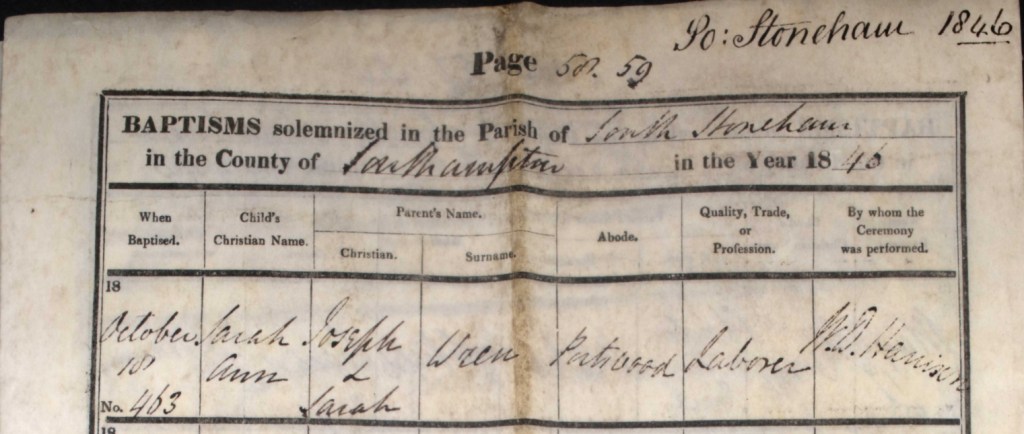 So: Stoneham 1846
Page 59
BAPTISMS solemnized in the Parish of South Stoneham
in the County of Southampton in the Year 1846
When Baptised.
Child's Christian Name.
Parent's Name.
Christian.
Surname.
Abode.
Quality, Trade, or Profession.
By whom the Ceremony was performed.
18
October
18
No. 463
Sarah
Ann
Joseph
&
Sarah
Wren
Portswood
Laborer
Harrison
18